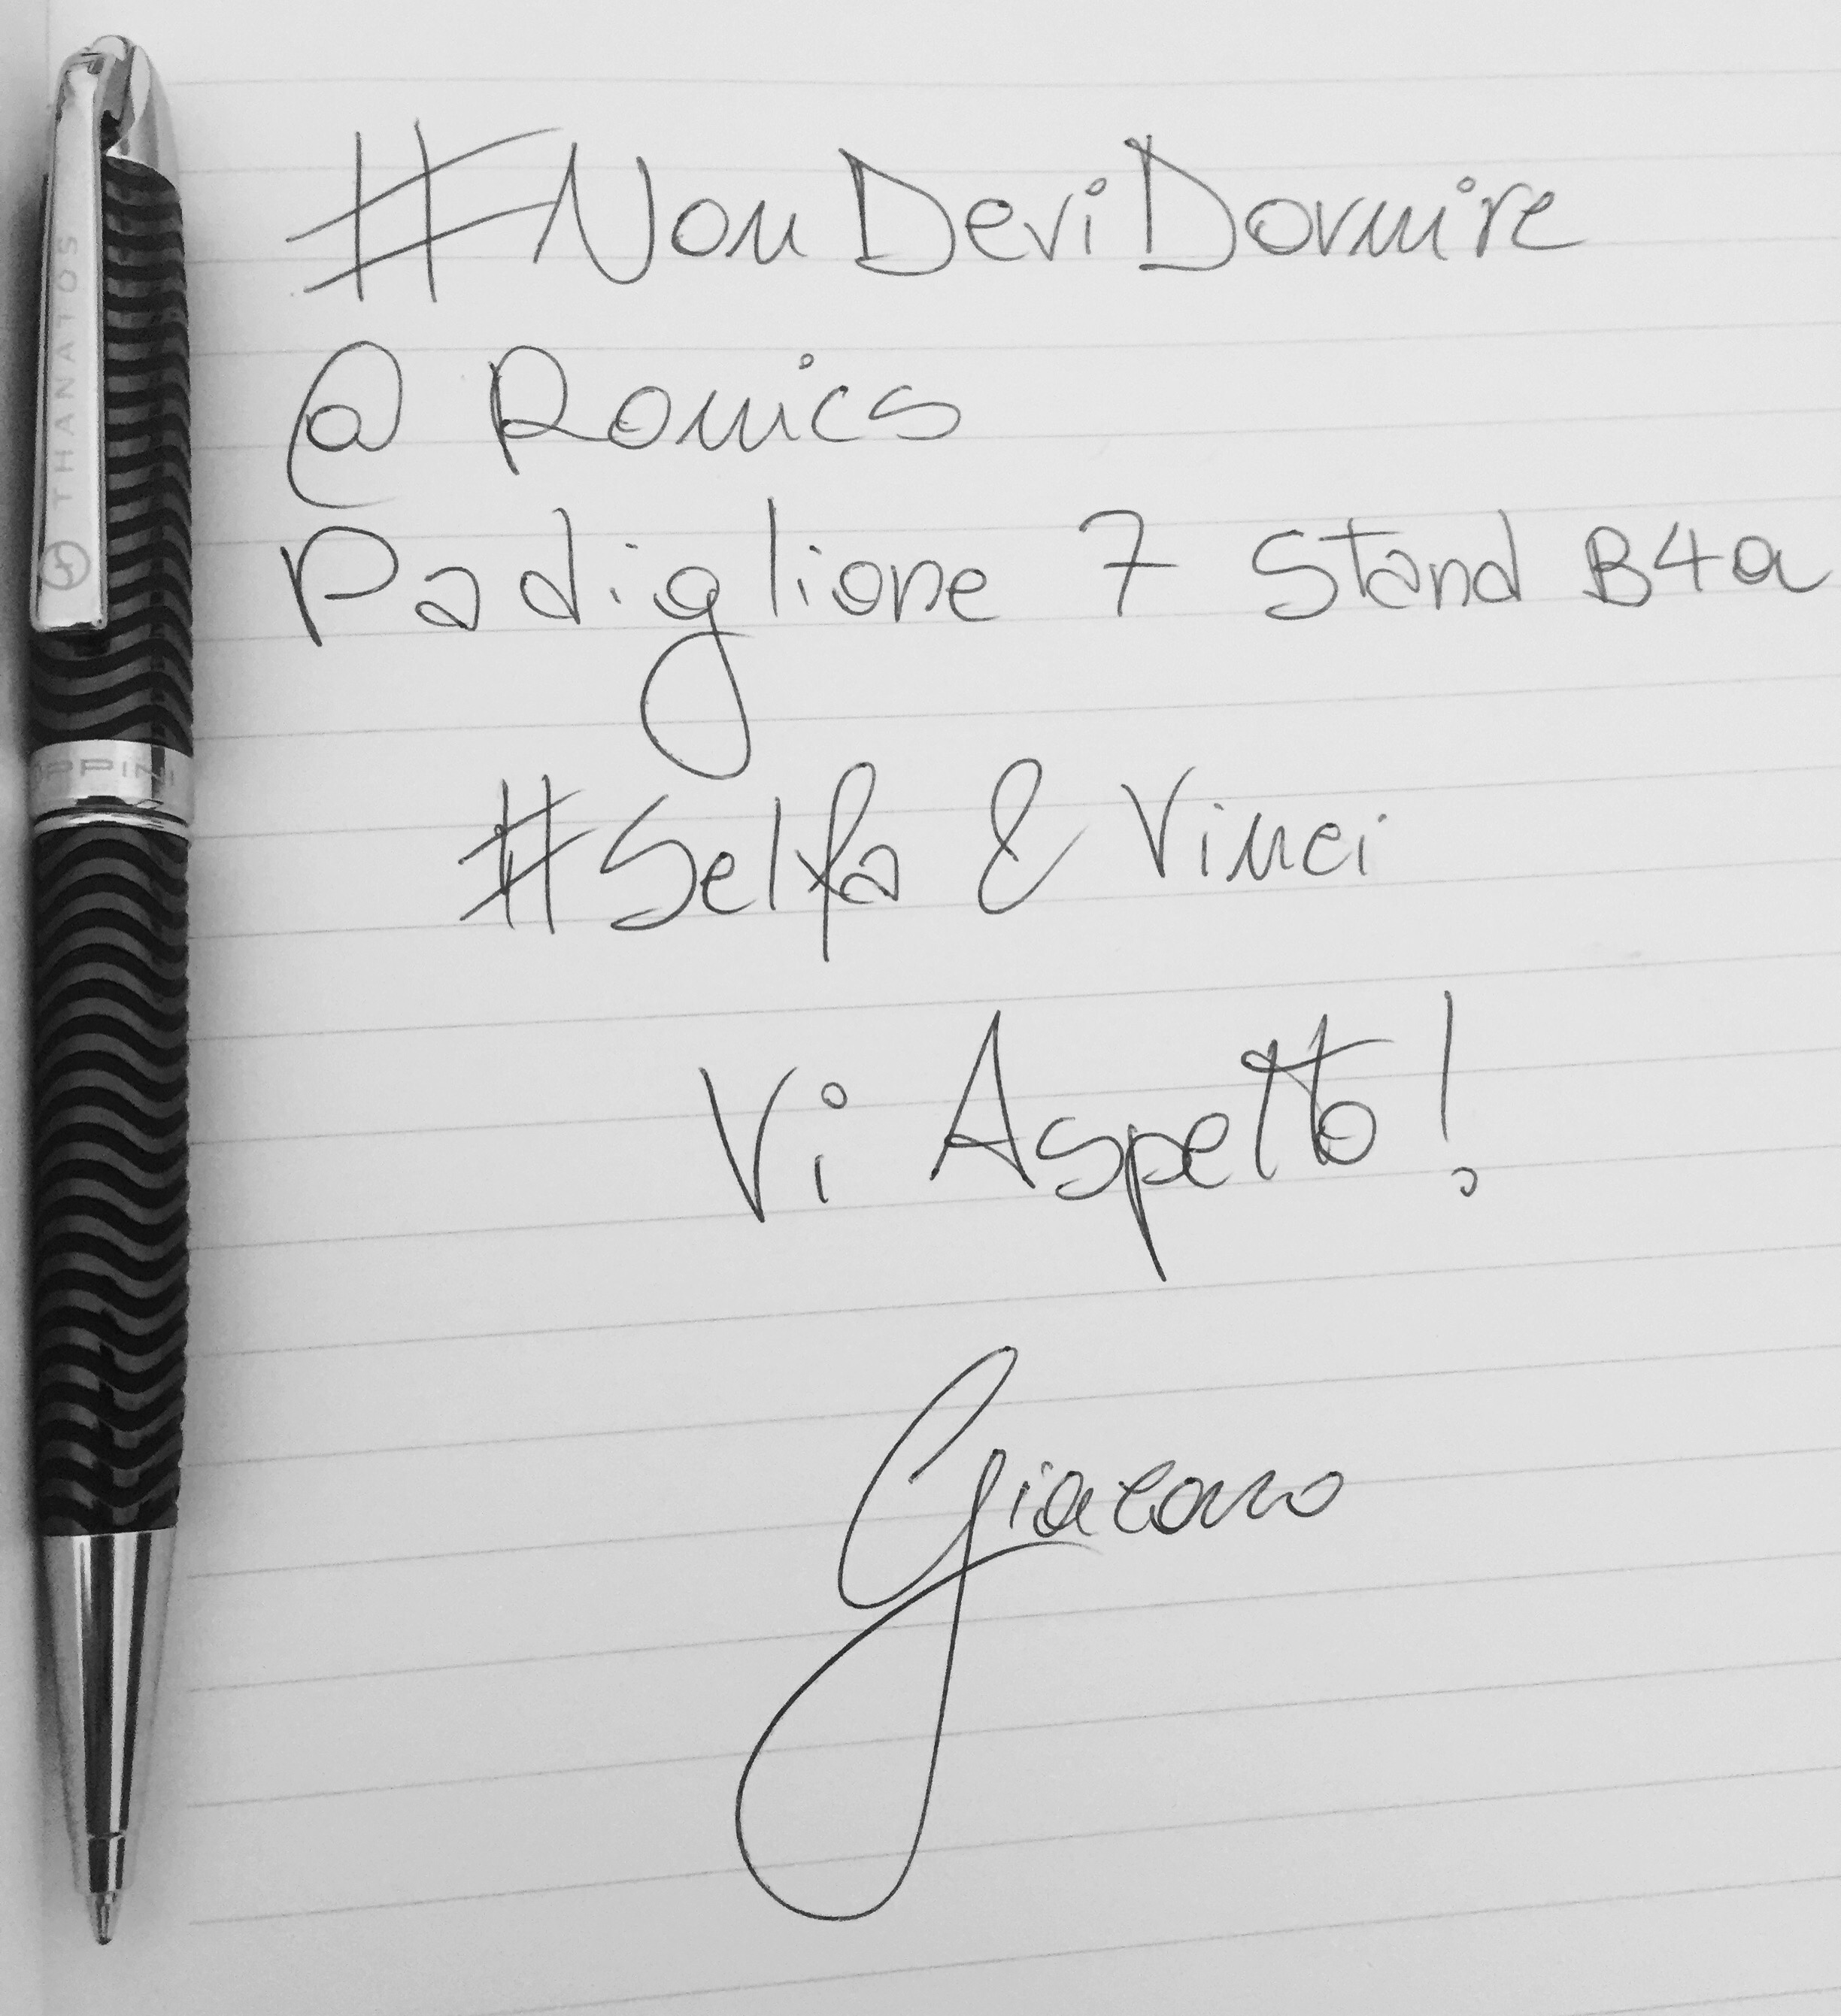 #NonDeviDormire
@ Romics
Padiglione 7 Stand B4a
#Selfa & Vinci
Vi Aspetto!
Giacomo
THANATOS